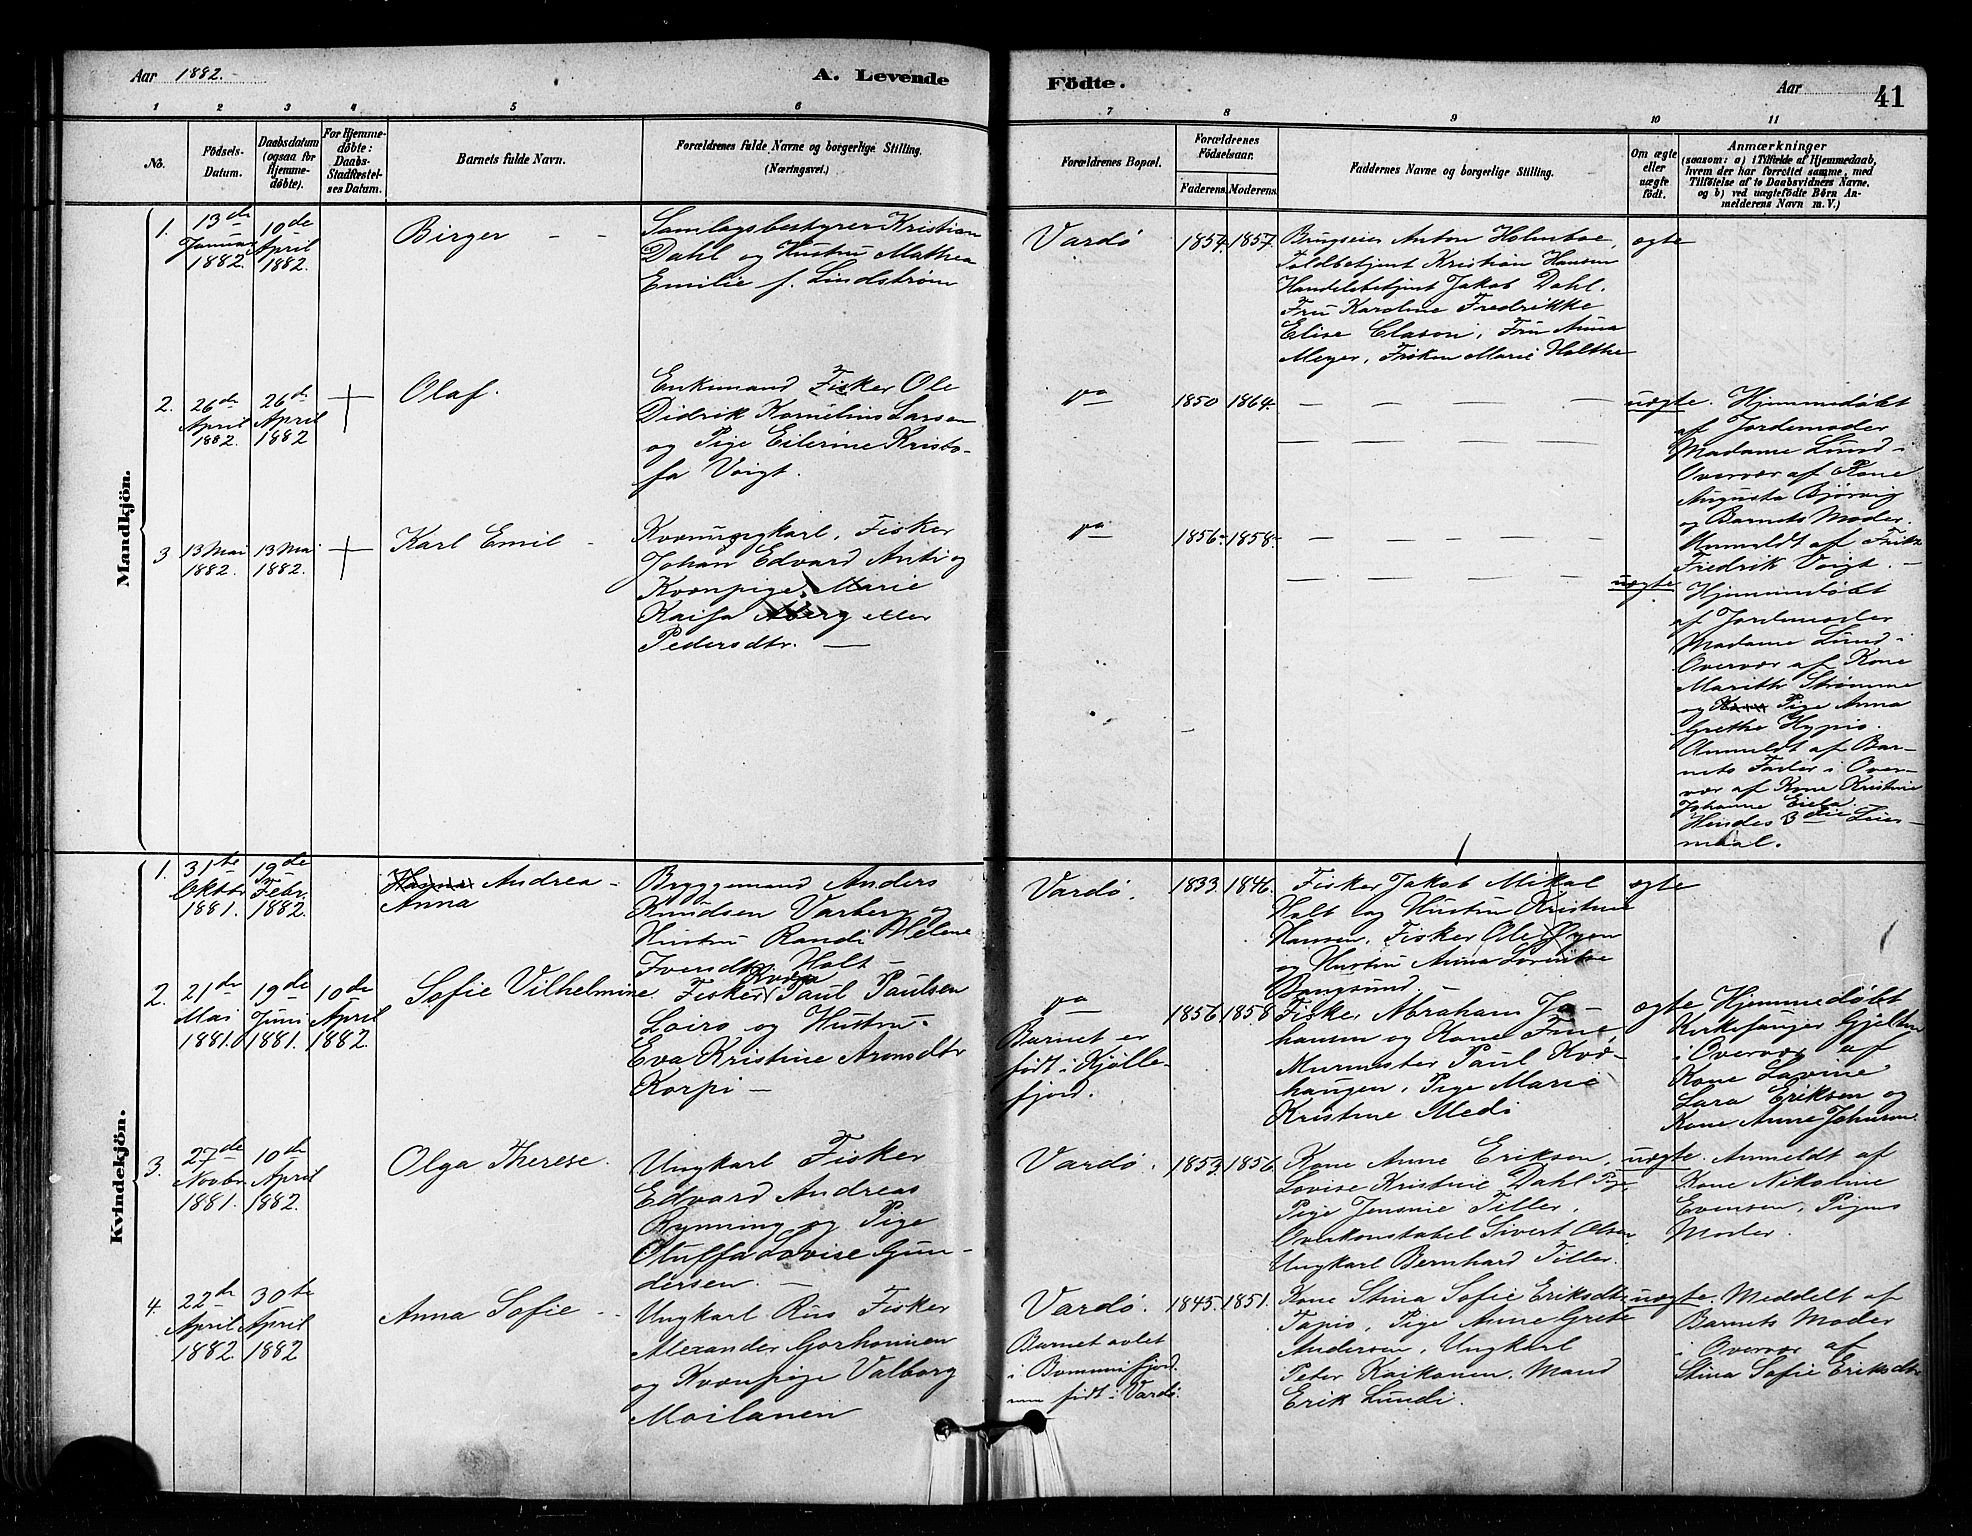 Aar 1882.
A. Levende
Födte.
Aar
41
1 2 3 4 5 6 7 8 9 10 11
No.
Födsels-
Datum.
Daabsdatum
(ogsaa for
Hjemme-
døbte).
For Hjemme-
døbte:
Daabs-
Stadfæstel-
ses Datum.
Barnets fulde Navn.
Forældrenes fulde Navne og borgerlige Stilling.
(Næringsvei.)
Forældrenes Bopæl.
Forældrenes
Födselsaar.
Faderens. Moderens.
Faddernes Navne og borgerlige Stilling.
Om ægte
eller
uægte
födt.
Anmærkninger
(saasom: a) i Tilfælde af Hjemmedaab,
hvem der har forrettet samme, med
Tilföielse af to Daabsvidners Navne,
og b) ved uægtefödte Börn An-
melderens Navn m. V.)
Mandkjön.
1.
13de
Januar
1882.
10de
April
1882.
Birger
Samlagsbestyrer Kristian
Dahl og Hustru Mathea
Emilie f. Lindstrøm
Vardø
1854. 1857.
Brugseier Anton Holmboe,
Toldbetjent Kristian Hansen
Handelsbetjent Jakob Dahl.
Fru Karoline Fredrikke
Elise Clason, Fru Anna
Meyer, Frøken Marie Holthe
ægte
2.
26de
April
1882.
26de
April
1882
Olaf.
Enkemand Fisker Ole
Didrik Kornelius Larsen
og Pige Eilerine Kristo-
fa Voigt.
1850 1864.
uægte.
Hjemmedøbt
af Jordemoder
Madame Lund i
Overvær af Kone
Augusta Bjørvig
og Barnets Moder.
Anmeldt af
Fredrik Voigt.
3
13 Mai
1882.
13 Mai
1882.
Karl Emil
Kvænungkarl, Fisker
Johan Edvard Anti og
Kvænpige Marie
Kaisa eller
Pedersdtr.
1856 1858
uægte
Hjemmedøbt
af Jordemoder
Madame Lund i
Overvær af Kone
Strømme
og Pige Anna
Grethe
Anmeldt af Bar-
nets Fader i Over-
vær af Kone Kristine
Johanne Eiela.
Hendes 3die Leier-
maal.
Kvindekjön.
1.
31te
Oktbr
1881.
19de
Febr.
1882.
Andrea
Anna
Bryggemand Anders
Knudsen Varberg og
Hustru Randi Helene
Iversdtr Holt
Vardø.
1833. 1846.
Fisker Jakob Mikal
Holt og Hustru Kristine
Hansen, Fisker Ole
og Hustru Anna
Bangsund.
ægte
2.
21de
Mai
1881.
19de
Juni
1881.
10de
April
1882.
Sofie Vilhelmine
Fisker Paul Paulsen
Loiro og Hustru
Eva Kristine Aronsdtr
Korpi
Barnet er
født i Kjølle-
fjord.
1856 1858
Fisker Abraham Jo-
hansen og Kone
Murmester Paul Kvæ-
hangen, Pige Marie
Kristine Medi
ægte
Hjemmedøbt
Kirkesanger
i Overvær af
Kone Lavine
Lara Eriksen og
Kone Anne
3.
27de
Novbr
1881.
10de
April
1882.
Olga Therese.
Ungkarl Fisker
Edvard Andreas
Rynning og Pige
Lovise Gun-
dersen.
Vardø.
1853. 1856.
Kone Anne Eriksen,
Lovise Kristine Dahl
Pige Jensine Tiller,
Overkonstabel Sivert Olsen,
Ungkarl Bernhard Tiller.
uægte.
Anmeldt af
Kone Nikoline
Evensen, Pigens
Moder.
4.
22de
April
1882.
30te
April
1882
Anna Sofie
Ungkarl Rus Fisker
Alexander Gorhonnen
og Kvænpige Valborg
Moilanen
Vardø.
Barnet avlet
i Bommenifjord
men født i Vardø.
1845. 1851.
Kone Stina Sofie Eriksdtr
Tapio, Pige Anne Grete
Andersen, Ungkarl
Peter Kaikonen, Mand
Erik Lundi.
uægte.
Meddelt af
Barnets Moder
i Overvær af
Stina Sofie Eriksdtr